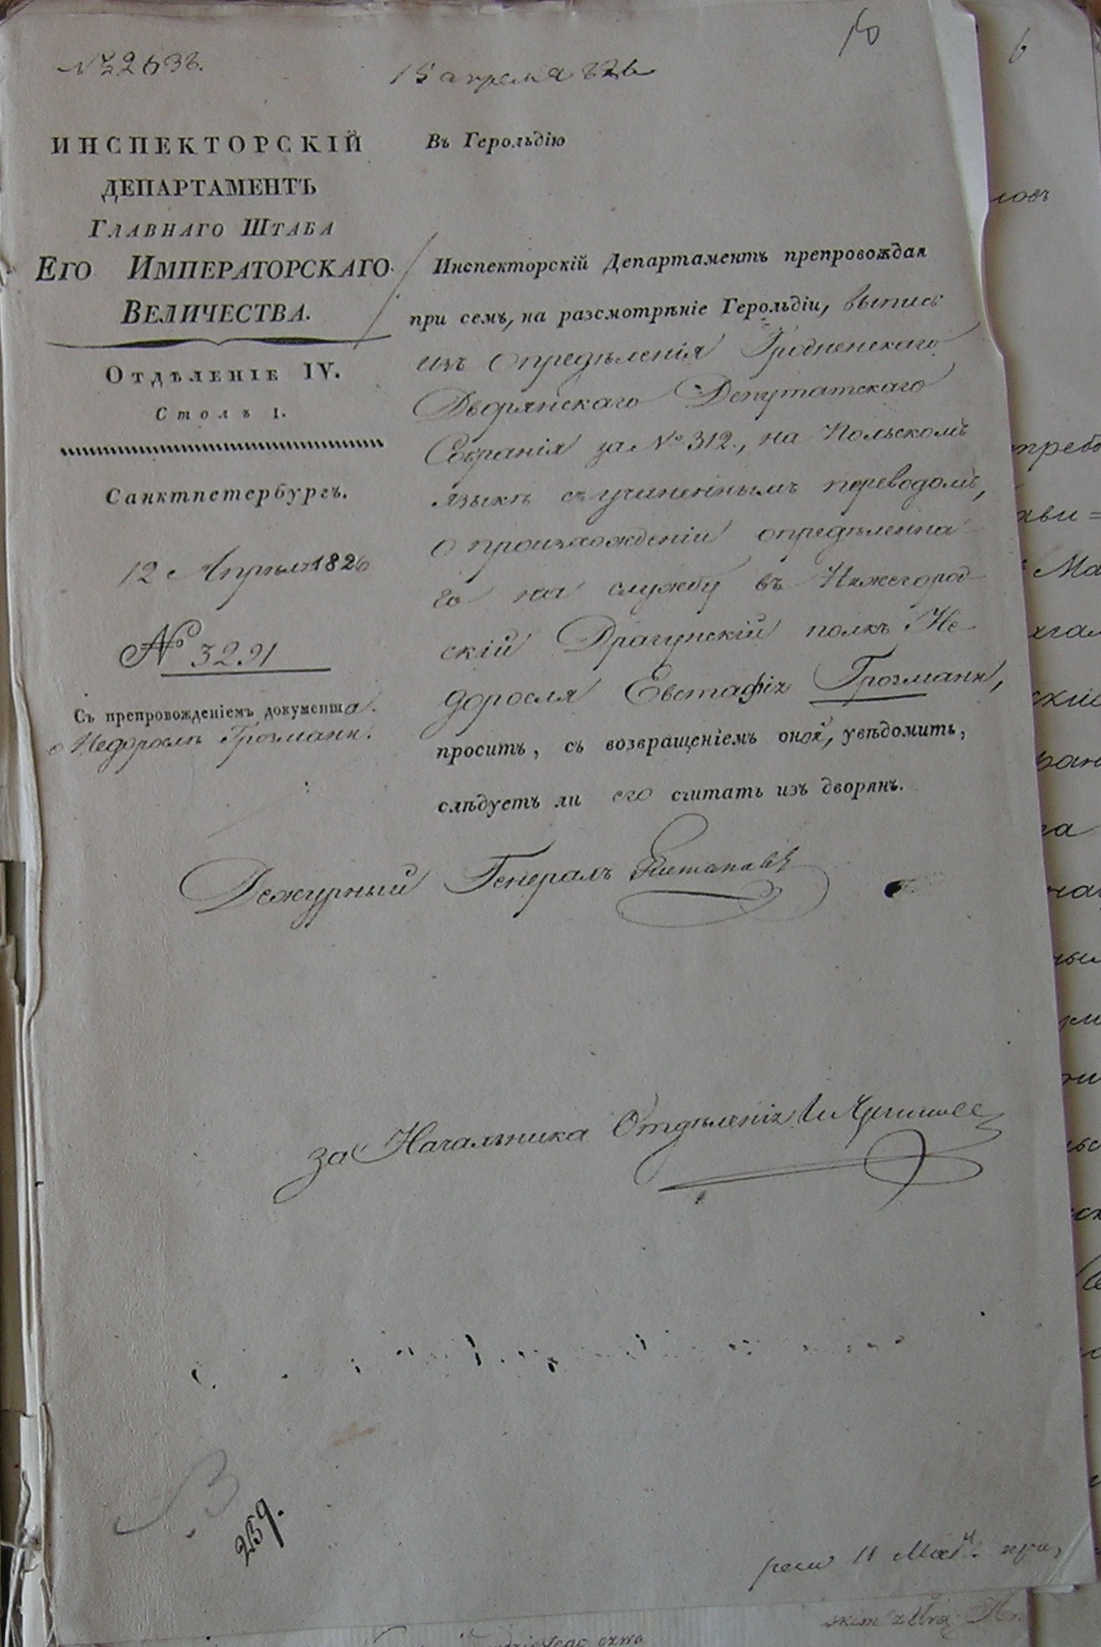 15 апреля 826
ИНСПЕКТОРСКІЙ
ДЕПАРТАМЕНТЪ
ГЛАВНАГО ШТАБА
ЕГО ИМПЕРАТОРСКАГО
ВЕЛИЧЕСТВА.
ОТДѢЛЕНІЕ IV.
Столъ 1.
Санктпетербургъ.
12 Апрѣля 1826
№ 3291
Съ препровожденіемъ документа
о Недорослѣ Грозманн.
Въ Герольдію
Инспекторскій Департаментъ препровождая
при семъ, на разсмотрѣніе Герольдіи, выпись
изъ опредѣленія Гродненскаго
Дворянскаго Депутатскаго
Собранія за № 312., на Польскомъ
языкѣ съ учиненнымъ переводомъ,
о произхожденіи опредѣленна
го на службу въ Нижегород
скій Драгунскій полкъ Не
доросля Евстафія Грозманн,
проситъ, съ возвращеніемъ оной, увѣдомить,
слѣдуетъ ли его считать изъ дворянъ.
Дежурный Генералъ Потаповъ
За Начальника Отдѣленія
259.
11 Мая